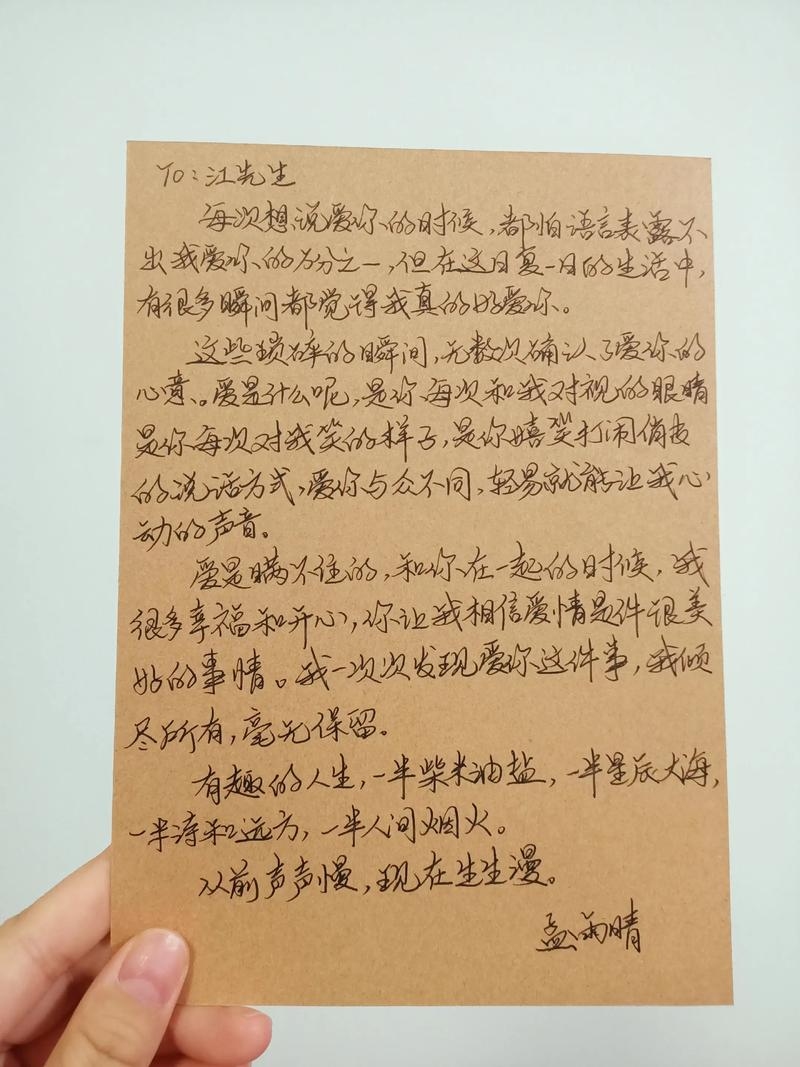 To：江先生
每次想说爱你的时候，都怕语言表露不
出我爱你的万分之一，但在这日复一日的生活中，
有很多瞬间都觉得我真的好爱你。
这些琐碎的瞬间，无数次确认了爱你的
心意。爱是什么呢，是你每次和我对视的眼睛
是你每次对我笑的样子，是你嬉笑打闹俏皮
的说话方式，爱你与众不同，轻易就能让我心
动的声音。
爱是瞒不住的，和你在一起的时候，我
很多幸福和开心，你让我相信爱情是件很美
好的事情。我一次次发现爱你这件事，我倾
尽所有，毫无保留。
有趣的人生，一半柴米油盐，一半星辰大海，
一半诗和远方，一半人间烟火。
从前声声慢，现在生生漫。
孟雨晴